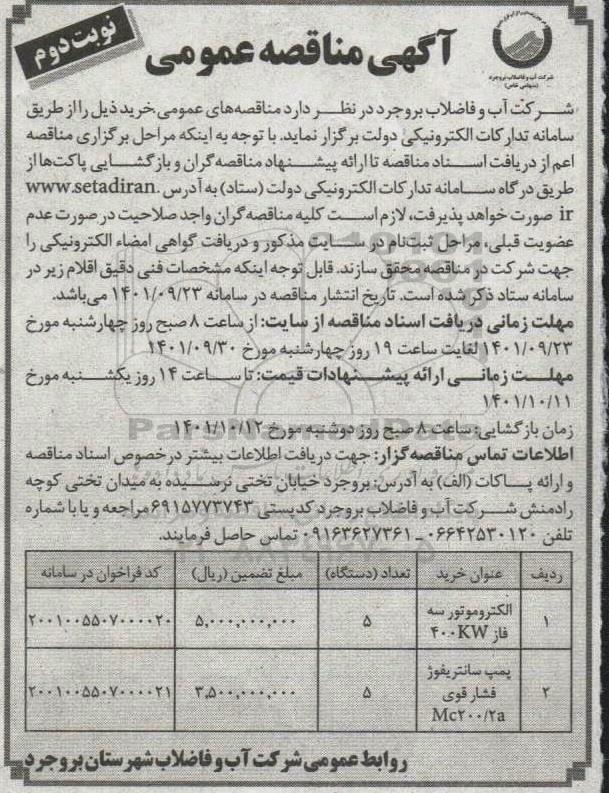 نوبت دوم
آگهی مناقصه عمومی
شرکت آب و فاضلاب بروجرد
(سهامی خاص)
شرکت آب و فاضلاب بروجرد در نظر دارد مناقصه‌های عمومی، خرید ذیل را از طریق
سامانه تدارکات الکترونیکی دولت برگزار نماید. با توجه به اینکه مراحل برگزاری مناقصه
اعم از دریافت اسناد مناقصه تا ارائه پیشنهاد مناقصه‌گران و بازگشایی پاکت‌ها از
طریق درگاه سامانه تدارکات الکترونیکی دولت (ستاد) به آدرس www.setadiran.
ir صورت خواهد پذیرفت، لازم است کلیه مناقصه‌گران واجد صلاحیت در صورت عدم
عضویت قبلی، مراحل ثبت‌نام در سایت مذکور و دریافت گواهی امضاء الکترونیکی را
جهت شرکت در مناقصه محقق سازند. قابل توجه اینکه مشخصات فنی دقیق اقلام زیر در
سامانه ستاد ذکر شده است. تاریخ انتشار مناقصه در سامانه ۱۴۰۱/۰۹/۲۳ می‌باشد.
مهلت زمانی دریافت اسناد مناقصه از سایت: از ساعت ۸ صبح روز چهارشنبه مورخ
۱۴۰۱/۰۹/۲۳ لغایت ساعت ۱۹ روز چهارشنبه مورخ ۱۴۰۱/۰۹/۳۰
مهلت زمانی ارائه پیشنهادات قیمت: تا ساعت ۱۴ روز یکشنبه مورخ
۱۴۰۱/۱۰/۱۱
زمان بازگشایی: ساعت ۸ صبح روز دوشنبه مورخ ۱۴۰۱/۱۰/۱۲
اطلاعات تماس مناقصه‌گزار: جهت دریافت اطلاعات بیشتر درخصوص اسناد مناقصه
و ارائه پاکات (الف) به آدرس: بروجرد خیابان تختی نرسیده به میدان تختی کوچه
رادمنش شرکت آب و فاضلاب بروجرد کدپستی ۶۹۱۵۷۷۳۷۴۳ مراجعه و یا با شماره
تلفن ۰۶۶۴۲۵۳۰۱۲۰ ـ ۰۹۱۶۳۶۲۷۳۶۱ تماس حاصل فرمایند.
ردیف عنوان خرید تعداد (دستگاه) مبلغ تضمین (ریال) کد فراخوان در سامانه
۱ الکتروموتور سه فاز ۴۰۰KW ۵ ۵,۰۰۰,۰۰۰,۰۰۰ ۲۰۰۱۰۰۵۵۰۷۰۰۰۰۲۰
۲ پمپ سانتریفوژ فشار قوی Mc۲۰۰/۲a ۵ ۳,۵۰۰,۰۰۰,۰۰۰ ۲۰۰۱۰۰۵۵۰۷۰۰۰۰۲۱
روابط عمومی شرکت آب و فاضلاب شهرستان بروجرد